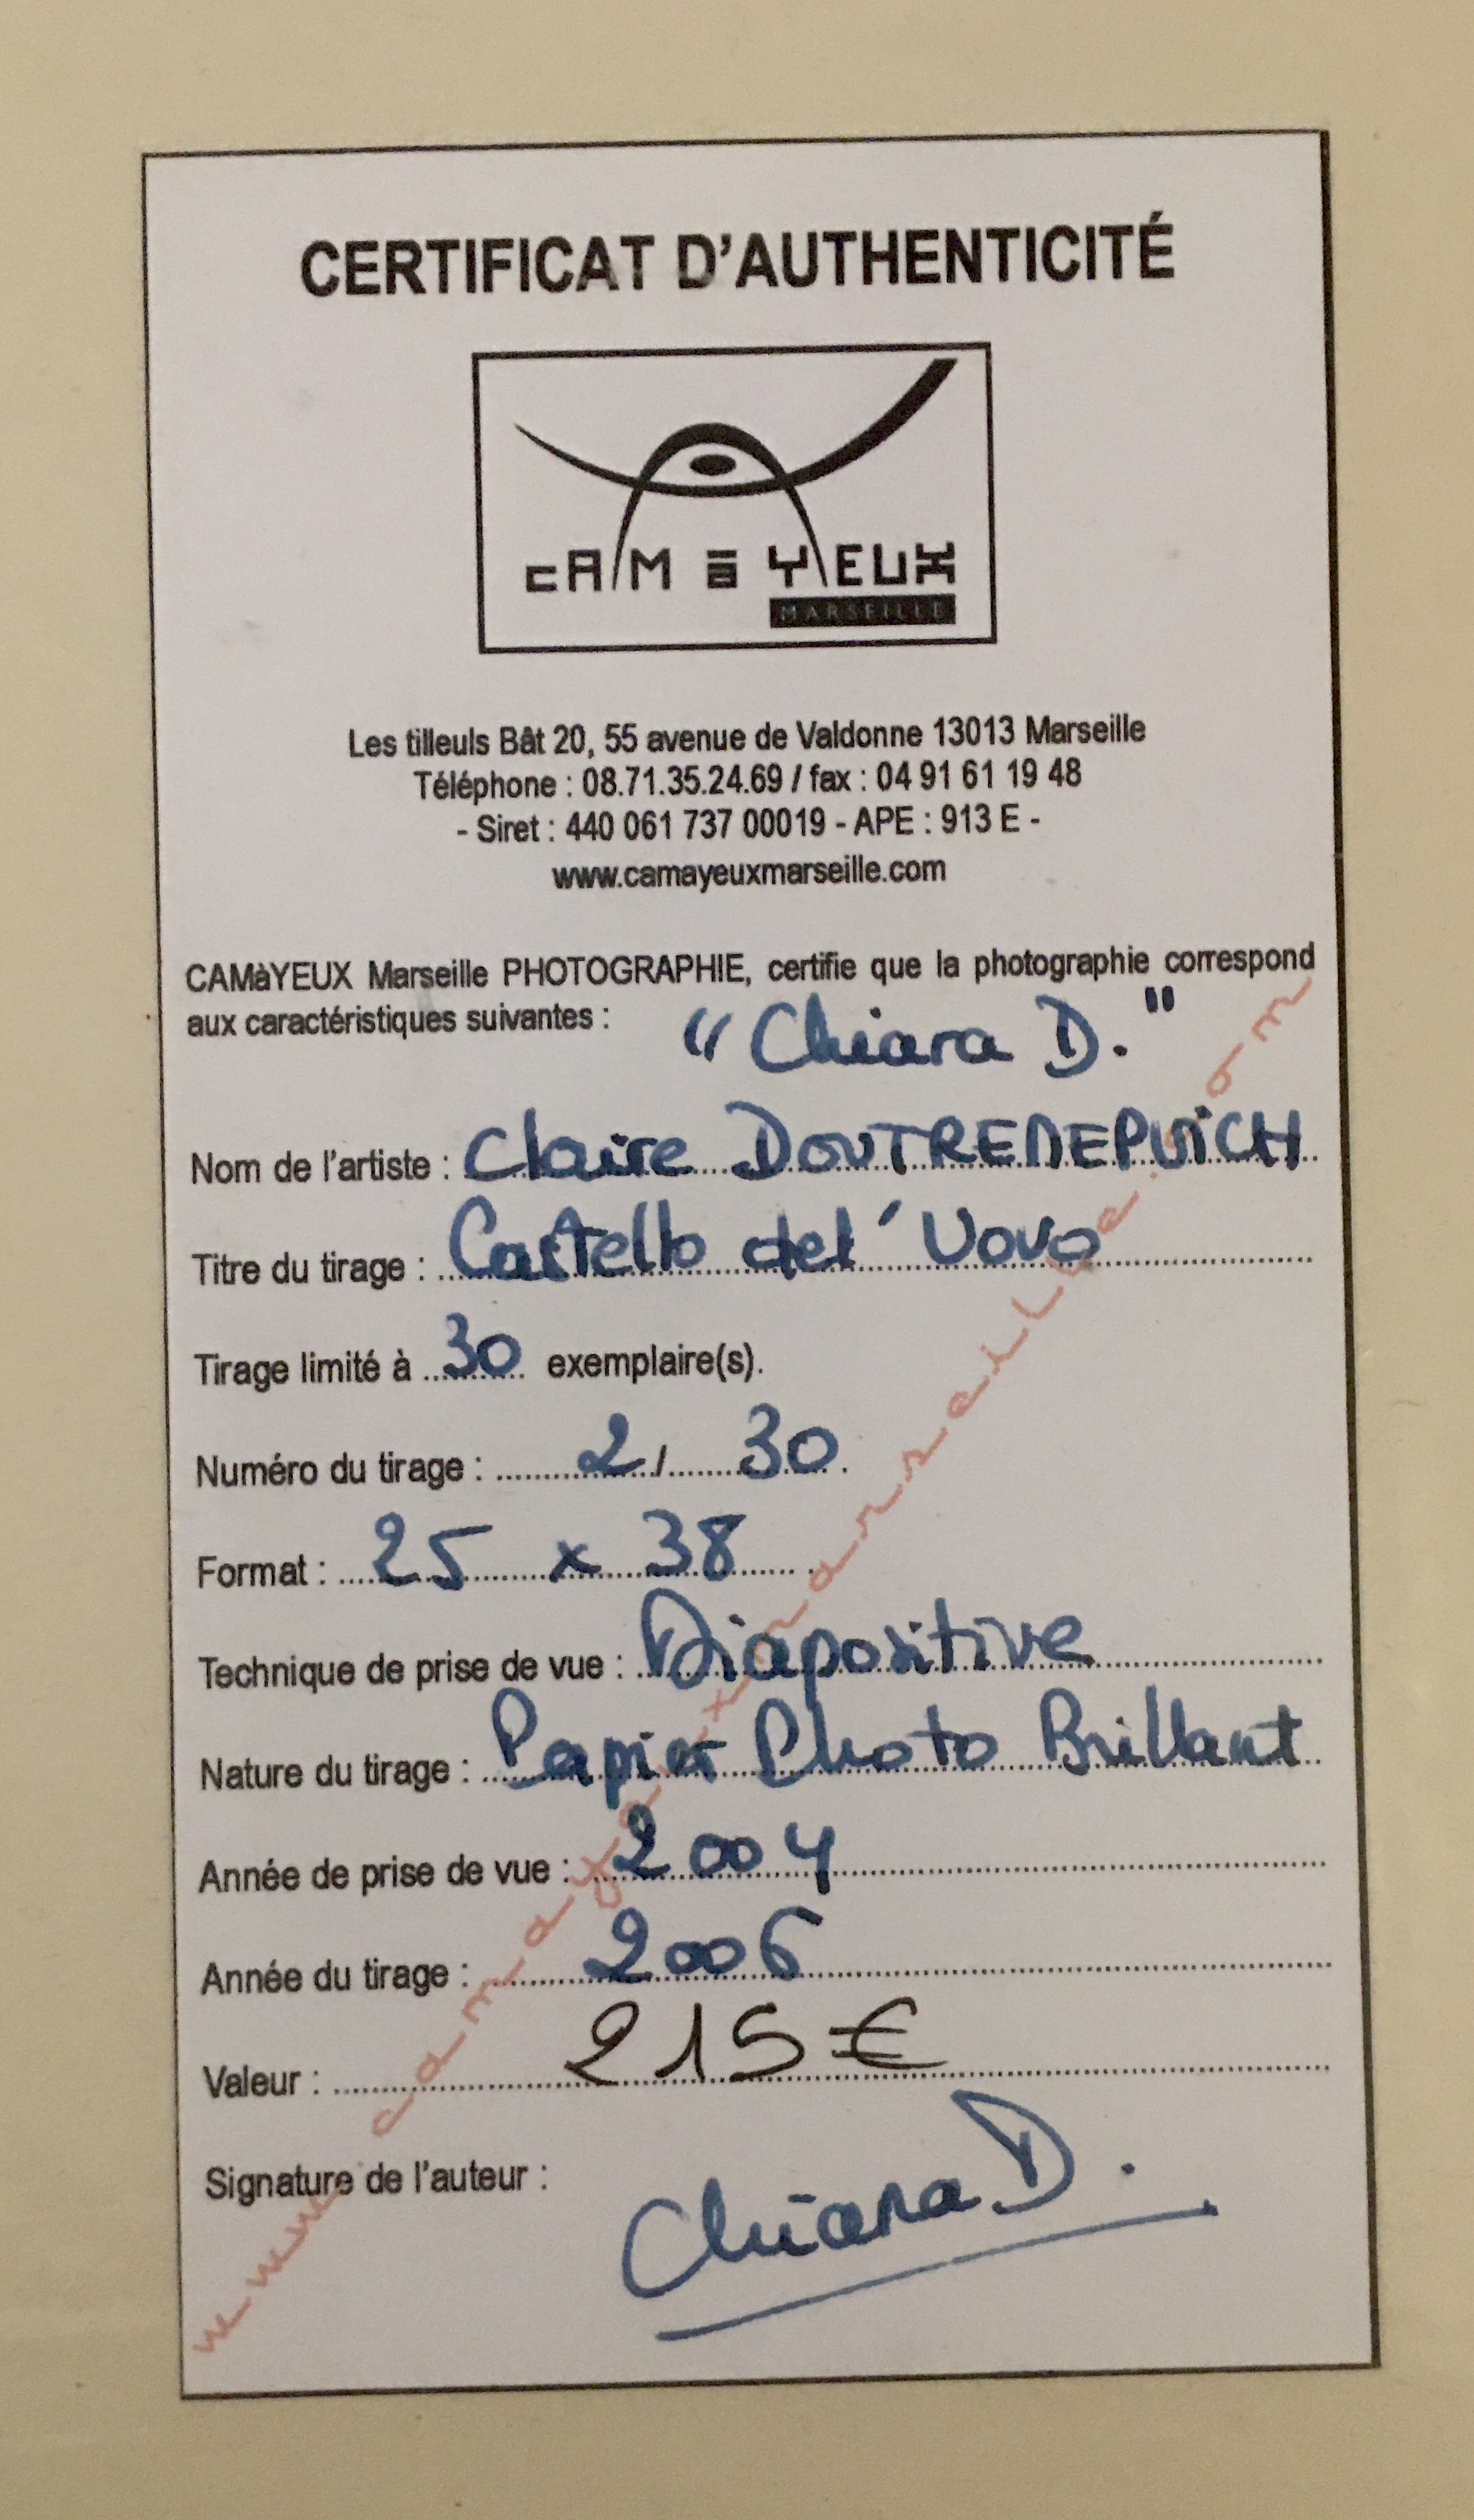 CERTIFICAT D'AUTHENTICITÉ
cAM à YEUX
MARSEILLE
Les tilleuls Bât 20, 55 avenue de Valdonne 13013 Marseille
Téléphone : 08.71.35.24.69 / fax : 04 91 61 19 48
- Siret : 440 061 737 00019 - APE : 913 E -
www.camayeuxmarseille.com
CAMàYEUX Marseille PHOTOGRAPHIE, certifie que la photographie correspond
aux caractéristiques suivantes : "Chiara D."
Nom de l'artiste : Claire DOUTREMEPUICH
Titre du tirage : Castello del' Uovo
Tirage limité à 30 exemplaire(s).
Numéro du tirage : 2 / 30.
Format : 25 x 38
Technique de prise de vue : Diapositive
Nature du tirage : Papier Photo Brillant
Année de prise de vue : 2004
Année du tirage : 2006
Valeur : 215 €
Signature de l'auteur :
Chiara D.
www.camayeuxmarseille.com